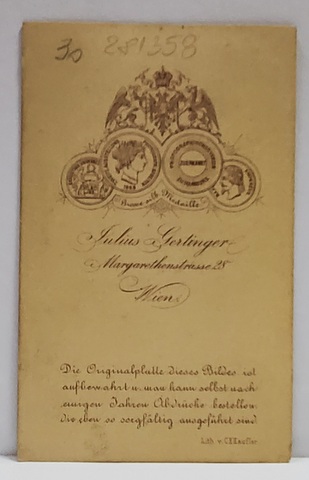 30 281358
Grosse silb. Medaille
Julius Gertinger
Margarethenstrasse 28
Wien
Die Originalplatte dieses Bildes ist
aufbewahrt u. man kann selbst nach
einigen Jahren Abdrücke bestellen
die eben so sorgfältig ausgeführt sind
Lith. v.